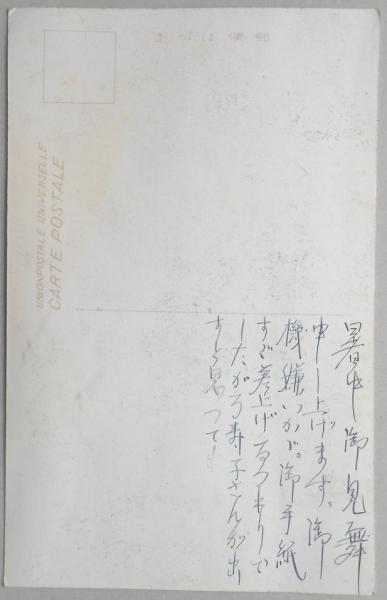 暑中御見舞
申し上げます。御
機嫌いかが。御手紙
すぐ差上げるつもりで
したがう寿子さんが出
すと思つて
UNIONPOSTALE UNIVERSELLE
CARTE POSTALE